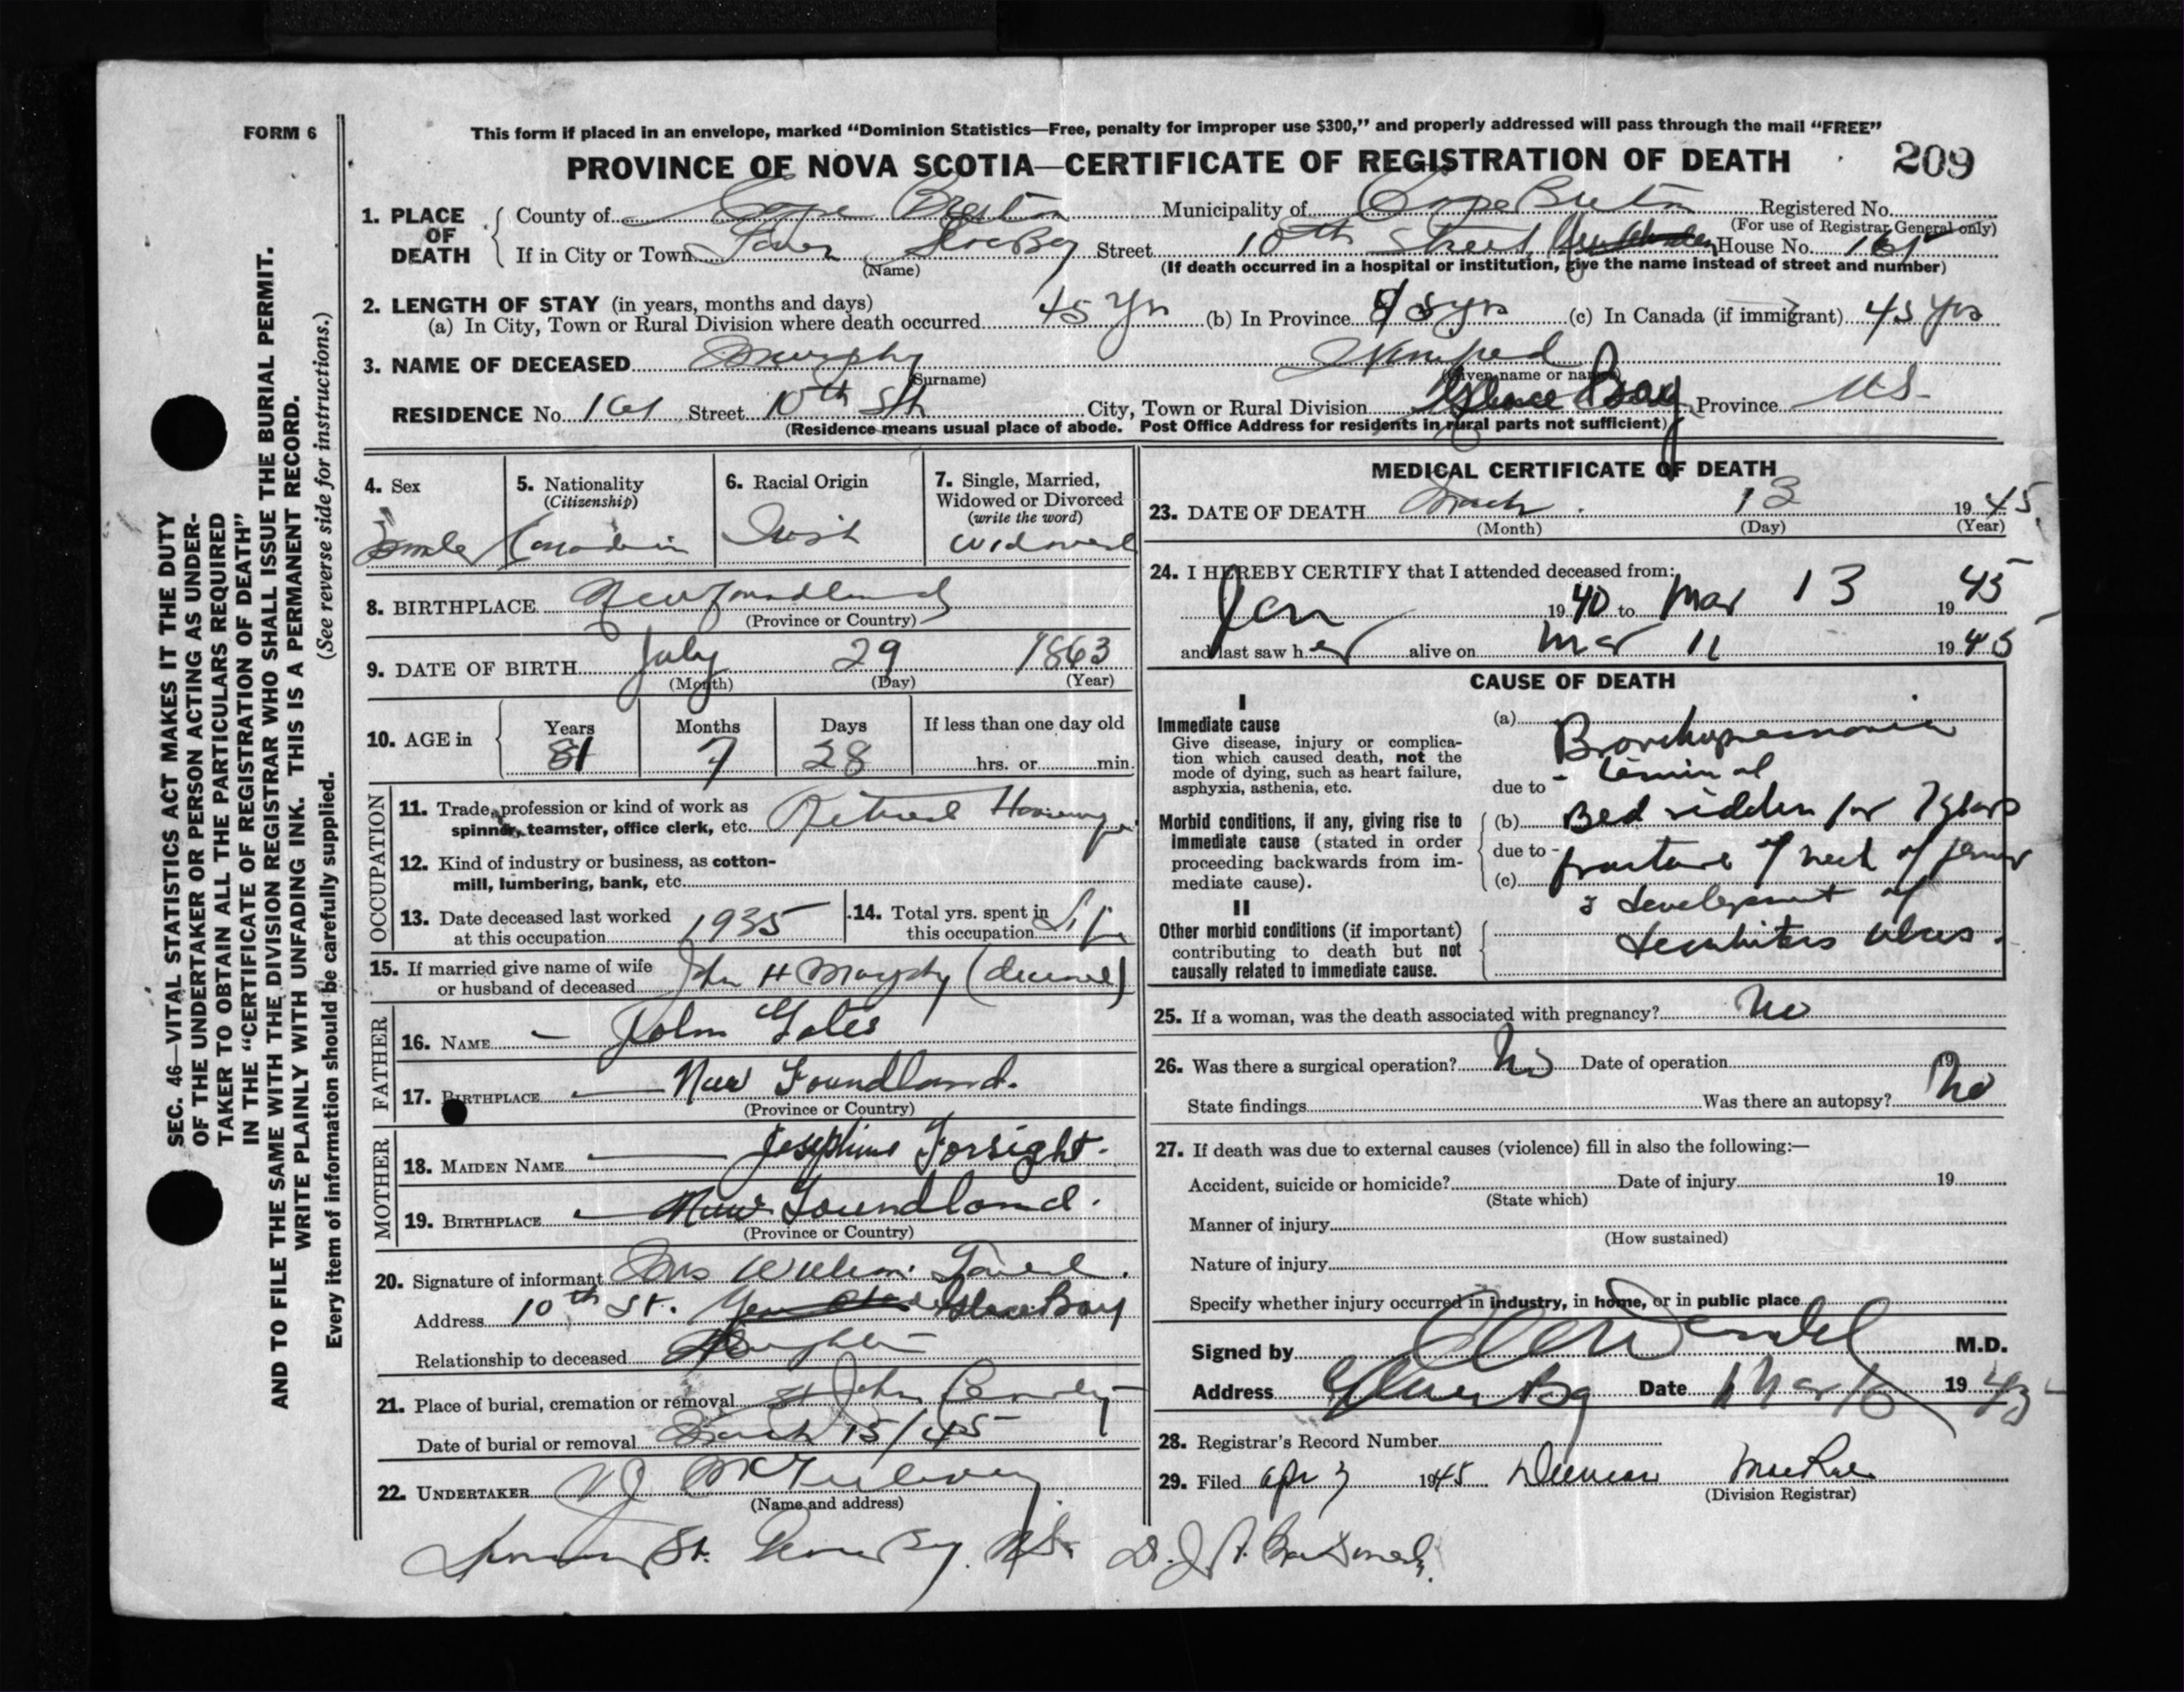 FORM 6
This form if placed in an envelope, marked “Dominion Statistics—Free, penalty for improper use $300,” and properly addressed will pass through the mail “FREE”
PROVINCE OF NOVA SCOTIA—CERTIFICATE OF REGISTRATION OF DEATH 209
1. PLACE OF DEATH
County of Cape Breton Municipality of Cape Breton Registered No.
(For use of Registrar General only)
If in City or Town Town Glace Bay Street 10th Street House No. 161
(Name) (If death occurred in a hospital or institution, give the name instead of street and number)
2. LENGTH OF STAY (in years, months and days)
(a) In City, Town or Rural Division where death occurred 45 yrs (b) In Province yrs (c) In Canada (if immigrant) 45 yrs
3. NAME OF DECEASED Murphy Winifred
(Surname) (Given name or names)
RESIDENCE No. 161 Street 10th St City, Town or Rural Division Glace Bay Province NS
(Residence means usual place of abode. Post Office Address for residents in rural parts not sufficient)
4. Sex Female
5. Nationality (Citizenship) Canadian
6. Racial Origin Irish
7. Single, Married, Widowed or Divorced (write the word) Widowed
8. BIRTHPLACE Newfoundland
(Province or Country)
9. DATE OF BIRTH July 29 1863
(Month) (Day) (Year)
10. AGE in Years 81 Months 7 Days 28 If less than one day old hrs. or min.
OCCUPATION
11. Trade, profession or kind of work as
spinner, teamster, office clerk, etc. Retired
12. Kind of industry or business, as cotton-
mill, lumbering, bank, etc.
13. Date deceased last worked
at this occupation 1935
14. Total yrs. spent in
this occupation Life
15. If married give name of wife
or husband of deceased John H Murphy (deceased)
FATHER
16. NAME — John Gales
17. BIRTHPLACE — New Foundland.
(Province or Country)
MOTHER
18. MAIDEN NAME — Josephine Forsight.
19. BIRTHPLACE — New Foundland.
(Province or Country)
20. Signature of informant Mrs William
Address 10th St. Glace Bay
Relationship to deceased Daughter
21. Place of burial, cremation or removal St John
Date of burial or removal March 15/45
22. UNDERTAKER
(Name and address)
St. Glace Bay. N.S.
MEDICAL CERTIFICATE OF DEATH
23. DATE OF DEATH March 13 1945
(Month) (Day) (Year)
24. I HEREBY CERTIFY that I attended deceased from:
Jan 1940 to Mar 13 1945
and last saw her alive on Mar 11 1945
CAUSE OF DEATH
I
Immediate cause
Give disease, injury or complica-
tion which caused death, not the
mode of dying, such as heart failure,
asphyxia, asthenia, etc.
(a) Bronchopneumonia
due to - terminal
Morbid conditions, if any, giving rise to
immediate cause (stated in order
proceeding backwards from im-
mediate cause).
(b) Bed ridden for 7 years
due to -
(c) fracture of neck of femur
development of
decubitus ulcers.
II
Other morbid conditions (if important)
contributing to death but not
causally related to immediate cause.
25. If a woman, was the death associated with pregnancy? No
26. Was there a surgical operation? No Date of operation 19
State findings Was there an autopsy? No
27. If death was due to external causes (violence) fill in also the following:—
Accident, suicide or homicide? Date of injury 19
(State which)
Manner of injury
(How sustained)
Nature of injury
Specify whether injury occurred in industry, in home, or in public place
Signed by M.D.
Address Glace Bay Date Mar 16 1945
28. Registrar's Record Number
29. Filed Apr 3 1945 Duncan MacRae
(Division Registrar)
SEC. 46—VITAL STATISTICS ACT MAKES IT THE DUTY
OF THE UNDERTAKER OR PERSON ACTING AS UNDER-
TAKER TO OBTAIN ALL THE PARTICULARS REQUIRED
IN THE “CERTIFICATE OF REGISTRATION OF DEATH”
AND TO FILE THE SAME WITH THE DIVISION REGISTRAR WHO SHALL ISSUE THE BURIAL PERMIT.
WRITE PLAINLY WITH UNFADING INK. THIS IS A PERMANENT RECORD.
Every item of information should be carefully supplied. (See reverse side for instructions.)